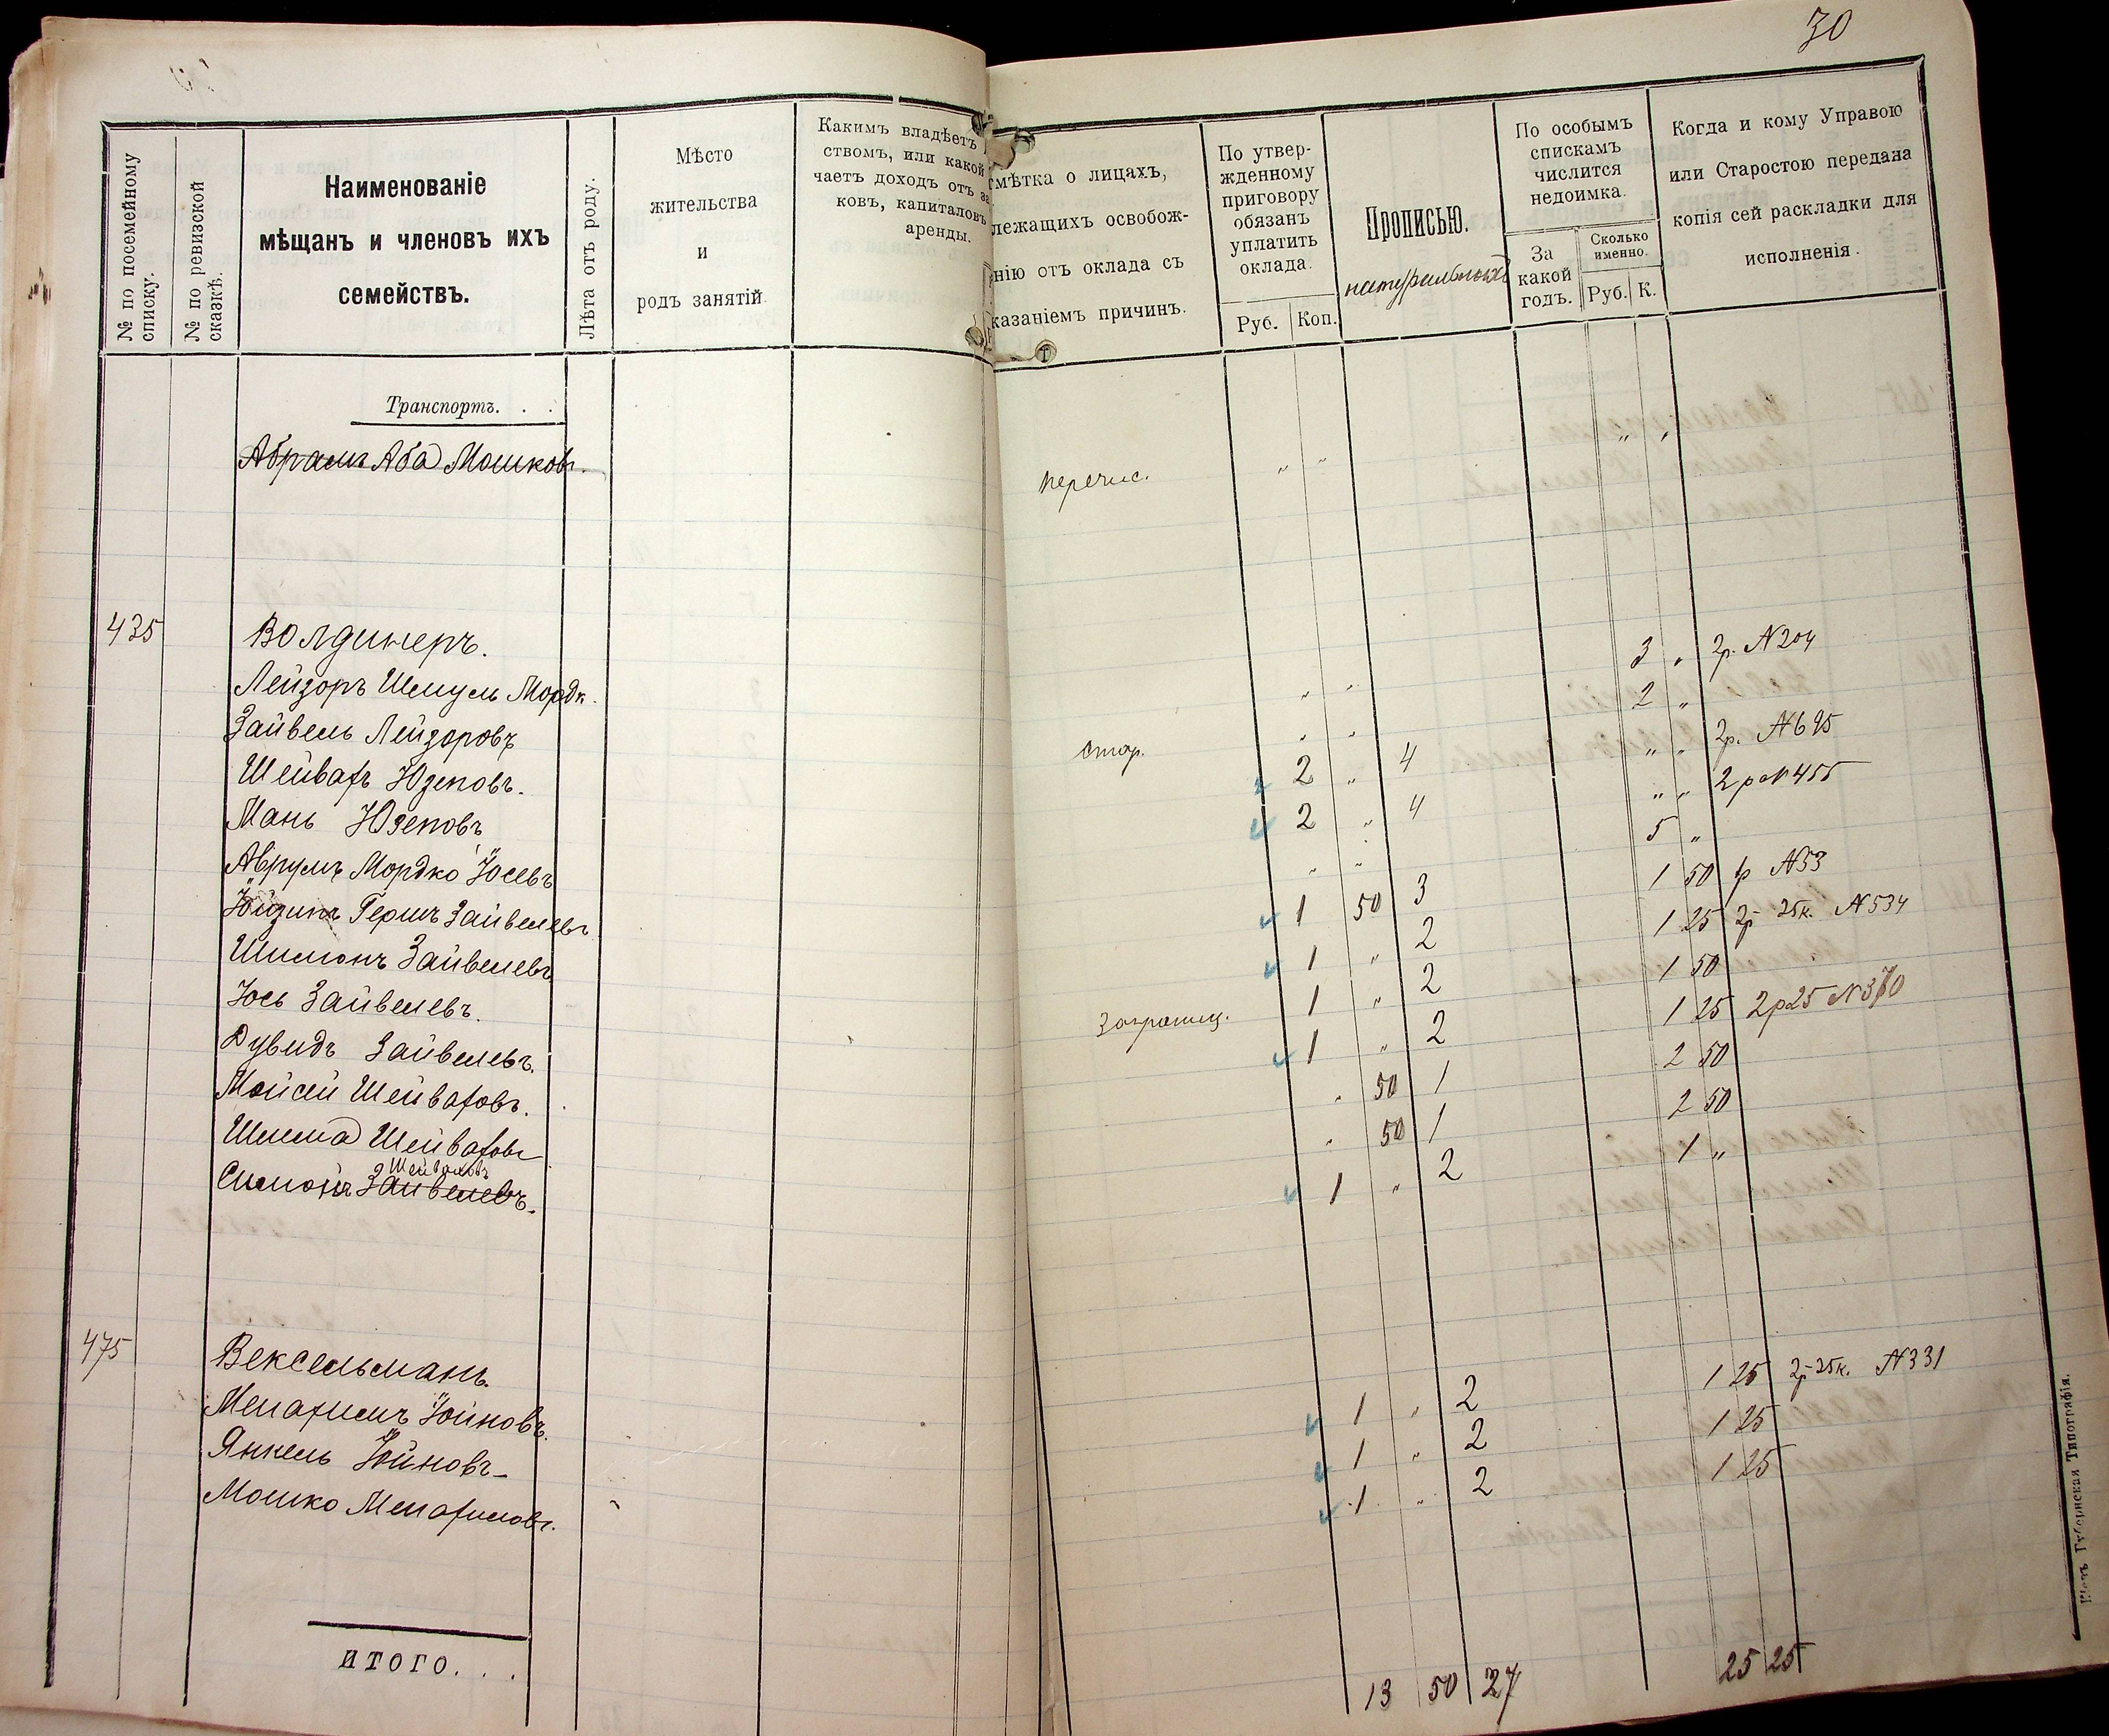 30
№ по посемейному списку.
№ по ревизской сказкѣ.
Наименованіе
мѣщанъ и членовъ ихъ
семействъ.
Лѣта отъ роду.
Мѣсто
жительства
и
родъ занятій
Какимъ владѣетъ
ствомъ, или какой
чаетъ доходъ отъ за
ковъ, капиталовъ
аренды.
мѣтка о лицахъ,
лежащихъ освобож-
нію отъ оклада съ
казаніемъ причинъ.
По утвер-
жденному
приговору
обязанъ
уплатить
оклада.
Руб. Коп.
Прописью.
натуральной
По особымъ
спискамъ
числится
недоимка.
За
какой
годъ.
Сколько
именно.
Руб. К.
Когда и кому Управою
или Старостою передана
копія сей раскладки для
исполненія.
Транспортъ. . .
Абрамъ Аба Мошков. перечис. " " " "
435 Волдинеръ. 3 " 2р. N204
Лейзоръ Шмуль Мордк. " " 2 "
Зайвель Лейзоровъ стар. " " " " 2р. N695
Шейвахъ Юзеповъ. 2 " 4 " " 2р N455
Мань Юзеповъ 2 " 4 5 "
Аврумъ Мордко Іосевъ " " 1 50 р N53
Гершъ Зайвелевъ 1 50 3 1 25 2р 25к. N534
Шимонъ Зайвелевъ 1 " 2 1 50
Іось Зайвелевъ. заграниц. 1 " 2 1 25 2р25 N370
Дувидъ Зайвелевъ. 1 " 2 2 50
Мойсей Шейваховъ. " 50 1 2 50
Шлема Шейваховъ " 50 1 1 "
Шейваховъ
Симонъ Зайвелевъ. 1 " 2
475 Вексельманъ. 1 25 2р 25к. N331
Менахимъ Іойновъ. 1 " 2 1 25
Янкель Іойновъ 1 " 2 1 25
Мошко Менахимовъ. 1 " 2
итого. . . 13 50 27 25 25
Губернская Типографія.